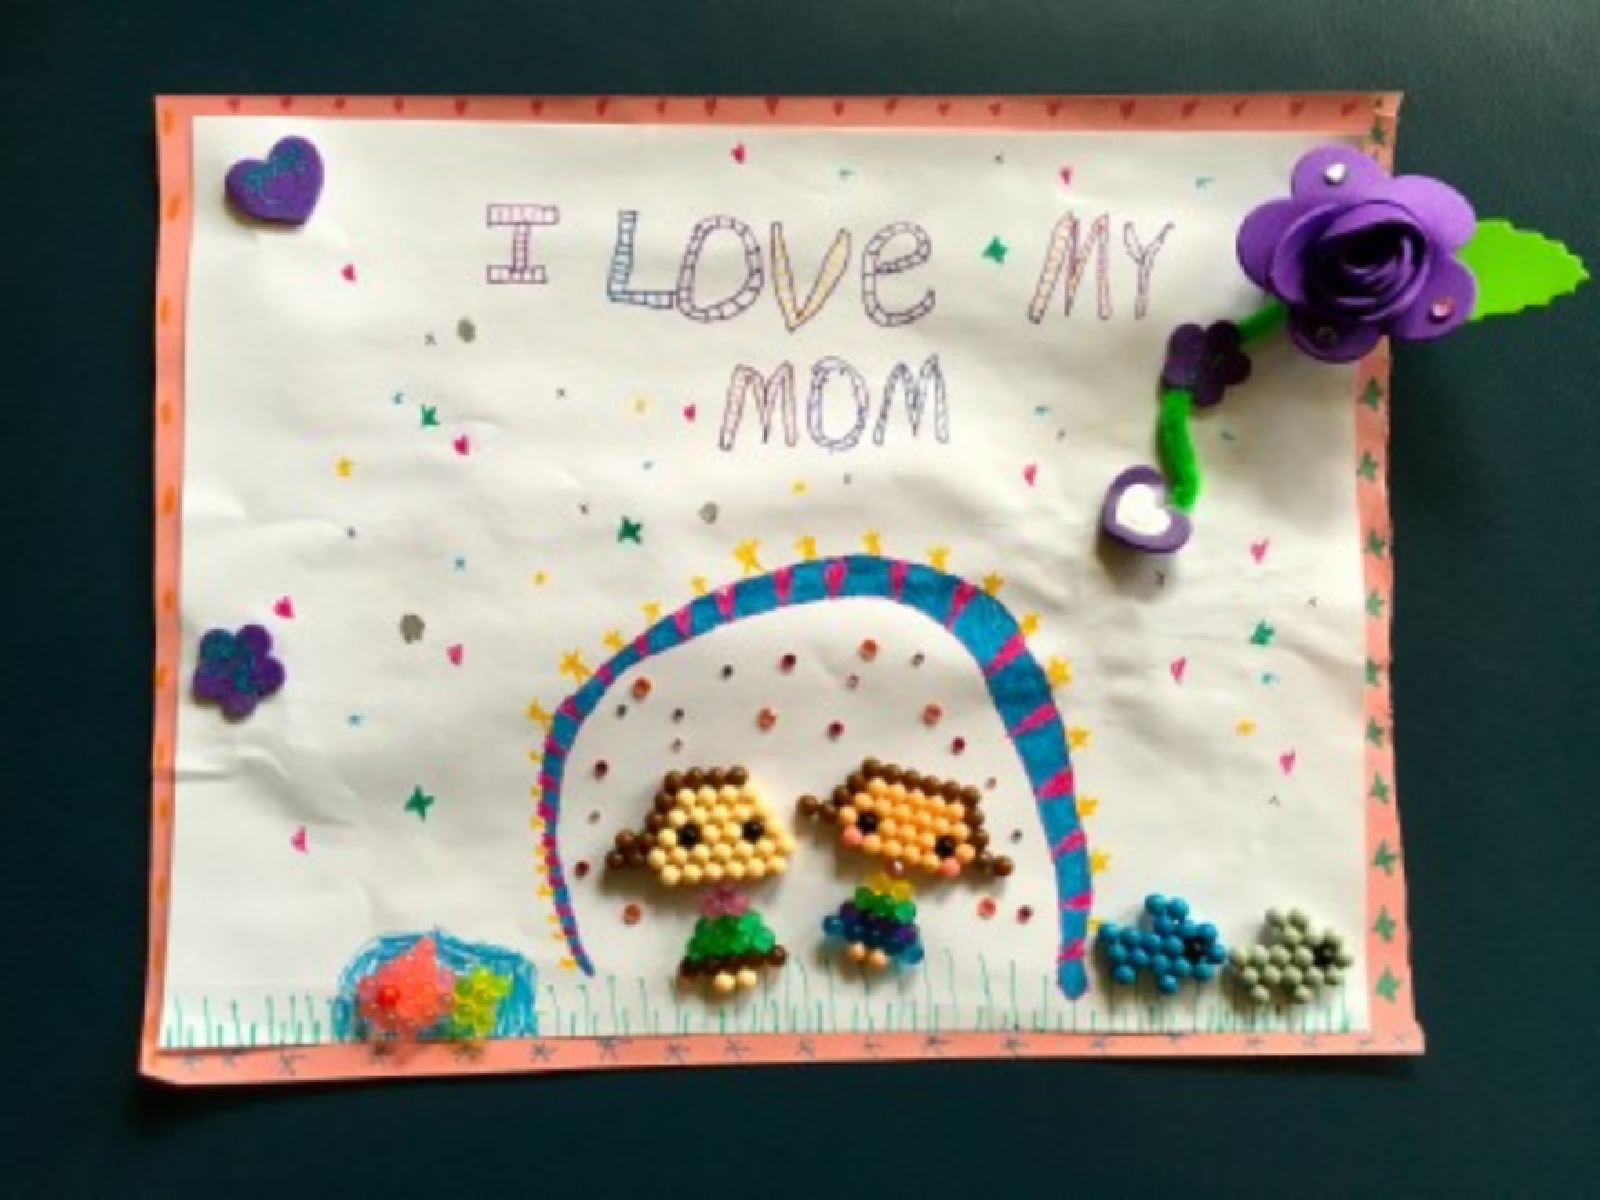 I LOVe MY
MOM